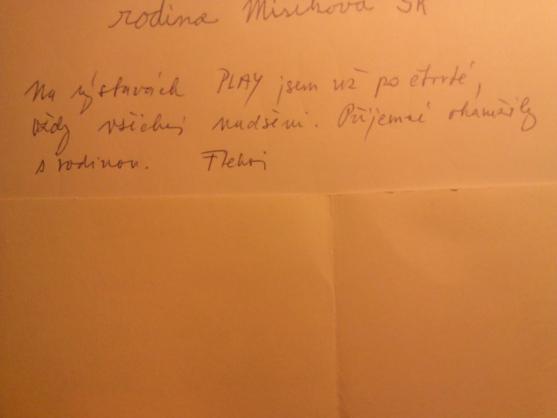 rodina Misíkova SR
Na výstavách PLAY jsem už po čtvrté,
vždy všichni nadšeni. Příjemné okamžiky
s rodinou.